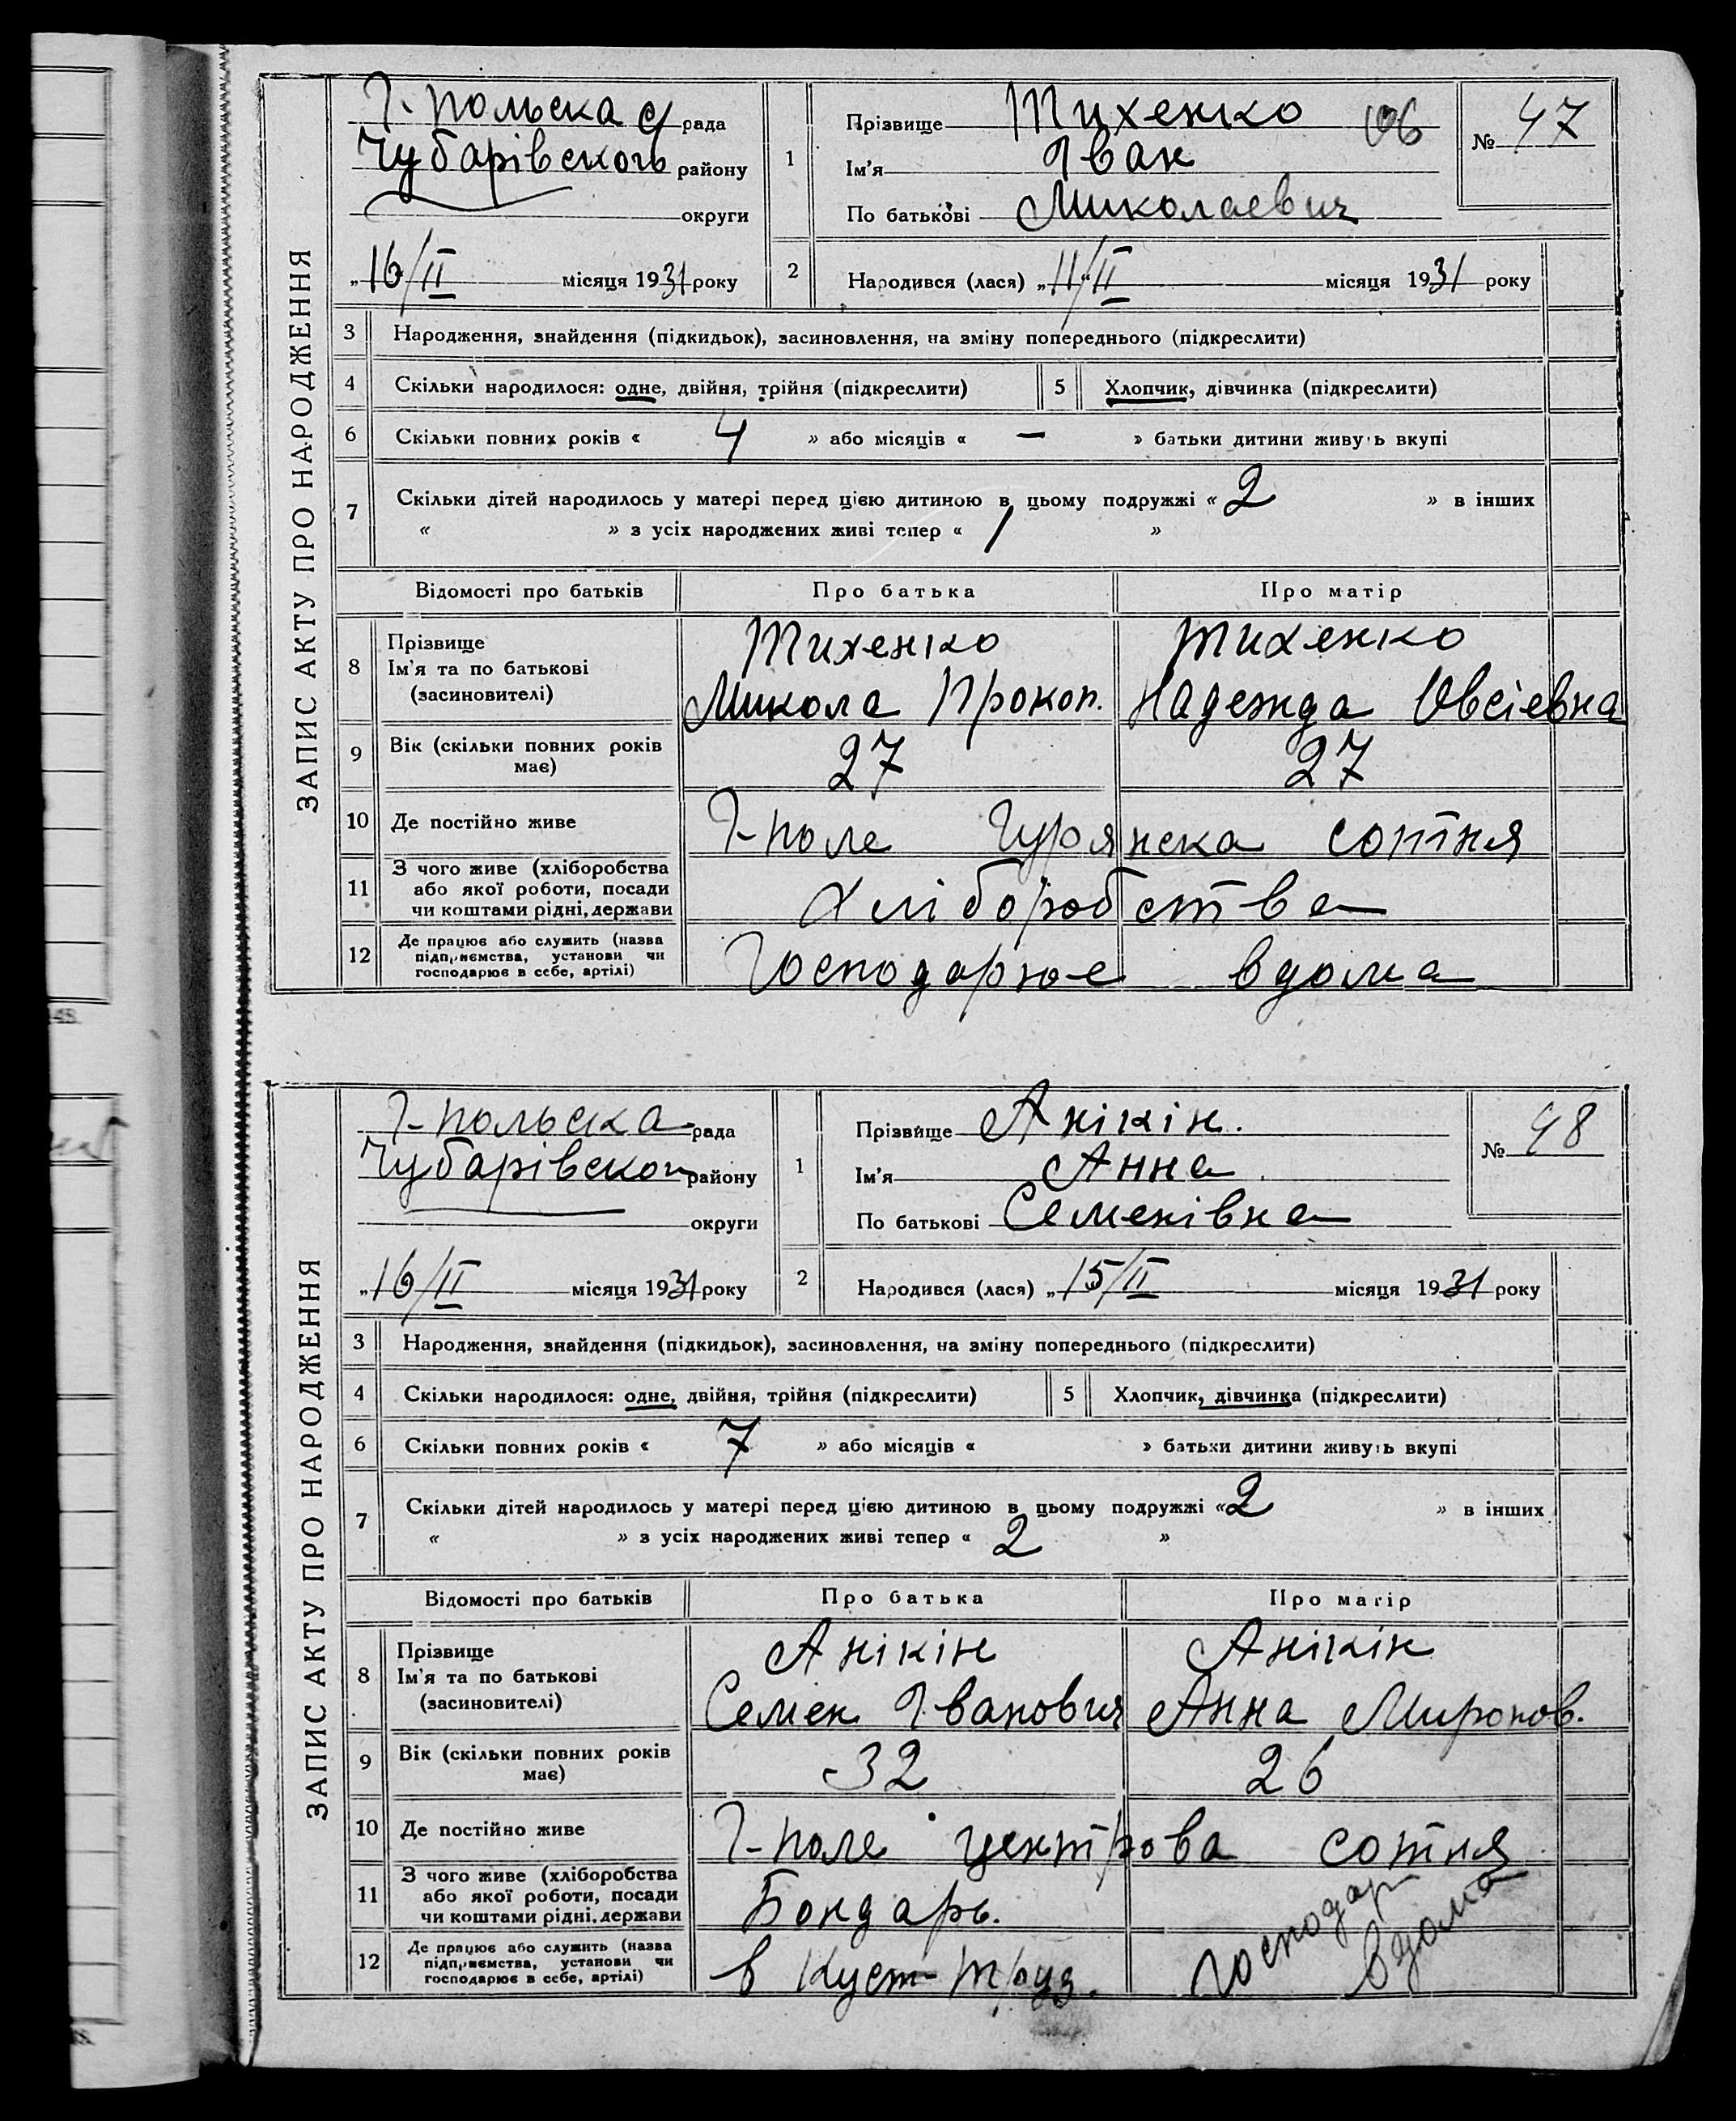 ЗАПИС АКТУ ПРО НАРОДЖЕННЯ
Г-польска с/рада
Чубарівського району
округи
„16/II місяця 1931 року
1
Прізвище Тихенко 106
Ім'я Іван
По батькові Миколаевич
№ 47
2
Народився (лася) „11/"II місяця 1931 року
3 Народження, знайдення (підкидьок), засиновлення, на зміну попереднього (підкреслити)
4 Скільки народилося: одне, двійня, трійня (підкреслити) 5 Хлопчик, дівчинка (підкреслити)
6 Скільки повних років « 4 » або місяців « — » батьки дитини живуть вкупі
7 Скільки дітей народилось у матері перед цією дитиною в цьому подружжі « 2 » в інших
« » з усіх народжених живі тепер « 1 »
Відомості про батьків Про батька Про матір
8 Прізвище Ім'я та по батькові (засиновителі)
Тихенко Тихенко
Микола Прокоп. Надежда Овсіевна
9 Вік (скільки повних років має) 27 27
10 Де постійно живе Г-поле Гурянска сотня
11 З чого живе (хліборобства або якої роботи, посади чи коштами рідні, держави Хліборобства
12 Де працює або служить (назва підприємства, установи чи господарює в себе, артілі) Господарює вдома
ЗАПИС АКТУ ПРО НАРОДЖЕННЯ
Г-польска рада
Чубарівского району
округи
„16/II місяця 1931 року
1
Прізвище Анікін.
Ім'я Анна
По батькові Семенівна
№ 48
2
Народився (лася) „15/II місяця 1931 року
3 Народження, знайдення (підкидьок), засиновлення, на зміну попереднього (підкреслити)
4 Скільки народилося: одне, двійня, трійня (підкреслити) 5 Хлопчик, дівчинка (підкреслити)
6 Скільки повних років « 7 » або місяців « » батьки дитини живуть вкупі
7 Скільки дітей народилось у матері перед цією дитиною в цьому подружжі « 2 » в інших
« » з усіх народжених живі тепер « 2 »
Відомості про батьків Про батька Про матір
8 Прізвище Ім'я та по батькові (засиновителі)
Анікін Анікін
Семен Іванович Анна Миронов.
9 Вік (скільки повних років має) 32 26
10 Де постійно живе Г-поле центрова сотня
11 З чого живе (хліборобства або якої роботи, посади чи коштами рідні, держави Бондарь.
12 Де працює або служить (назва підприємства, установи чи господарює в себе, артілі) в Куст-труд.
Господар
вдома